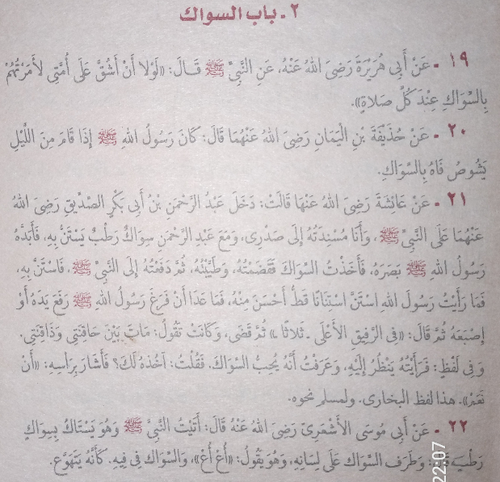 ٢ - باب السواك
١٩ - عَنْ أَبِي هُرَيْرَةَ رَضِىَ اللهُ عَنْهُ، عَنِ النَّبِيِّ ﷺ قَالَ: «لَوْلَا أَنْ أَشُقَّ عَلَى أُمَّتِى لأَمَرْتُهُمْ
بِالسِّوَاكِ عِنْدَ كُلِّ صَلاَةٍ».
٢٠ - عَنْ حُذَيْفَةَ بْنِ الْيَمَانِ رَضِىَ اللهُ عَنْهُمَا قَالَ: كَانَ رَسُولُ اللهِ ﷺ إِذَا قَامَ مِنَ اللَّيْلِ
يَشُوصُ فَاهُ بِالسِّوَاكِ.
٢١ - عَنْ عَائِشَةَ رَضِىَ اللهُ عَنْهَا قَالَتْ: دَخَلَ عَبْدُ الرَّحْمَنِ بْنُ أَبِى بَكْرٍ الصِّدِّيقِ رَضِىَ اللهُ
عَنْهُمَا عَلَى النَّبِيِّ ﷺ، وَأَنَا مُسْنِدَتُهُ إِلَى صَدْرِى، وَمَعَ عَبْدِ الرَّحْمَنِ سِوَاكٌ رَطْبٌ يَسْتَنُّ بِهِ، فَأَبَدَّهُ
رَسُولُ اللهِ ﷺ بَصَرَهُ، فَأَخَذْتُ السِّوَاكَ فَقَضَمْتُهُ، وَطَيَّبْتُهُ، ثُمَّ دَفَعْتُهُ إِلَى النَّبِيِّ ﷺ، فَاسْتَنَّ بِهِ،
فَمَا رَأَيْتُ رَسُولَ اللهِ اسْتَنَّ اسْتِنَانًا قَطُّ أَحْسَنَ مِنْهُ، فَمَا عَدَا أَنْ فَرَغَ رَسُولُ اللهِ ﷺ رَفَعَ يَدَهُ أَوْ
إِصْبَعَهُ ثُمَّ قَالَ: «فِى الرَّفِيقِ الأَعْلَى - ثَلاَثًا -» ثُمَّ قَضَى، وَكَانَتْ تَقُولُ: مَاتَ بَيْنَ حَاقِنَتِى وَذَاقِنَتِى.
وَفِى لَفْظٍ: فَرَأَيْتُهُ يَنْظُرُ إِلَيْهِ، وَعَرَفْتُ أَنَّهُ يُحِبُّ السِّوَاكَ. فَقُلْتُ: آخُذُهُ لَكَ؟ فَأَشَارَ بِرَأْسِهِ: «أَنْ
نَعَمْ». هذا لفظ البخارى. ولمسلم نحوه.
٢٢ - عَنْ أَبِى مُوسَى الأَشْعَرِىِّ رَضِىَ اللهُ عَنْهُ قَالَ: أَتَيْتُ النَّبِيَّ ﷺ وَهُوَ يَسْتَاكُ بِسِوَاكٍ
رَطْبٍ قَالَ: وَطَرَفُ السِّوَاكِ عَلَى لِسَانِهِ، وَهُوَ يَقُولُ: «أُعْ أُعْ»، وَالسِّوَاكُ فِى فِيهِ. كَأَنَّهُ يَتَهَوَّعُ.
22:07